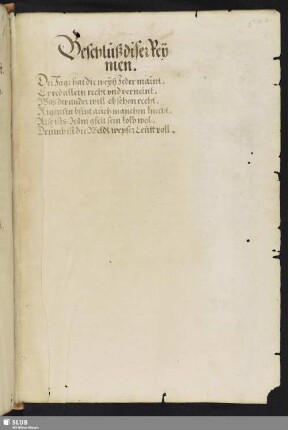 Beschluß diser Rey
men.
Der Jage hat die weyß Jeder maint.
Er red allein recht vnd verneint.
Was der ander will ob schon recht.
Aigensin bsitzt auch manchen knecht.
Also ists Jedem gfelt sein kolb wol.
Drumb ist die Weldt weyser Leütt voll.
SLUB